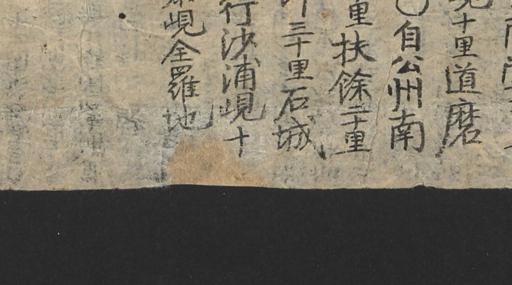 十里道磨
自公州南
里扶餘二十里
三十里石城
行沙浦峴十
峴全羅地